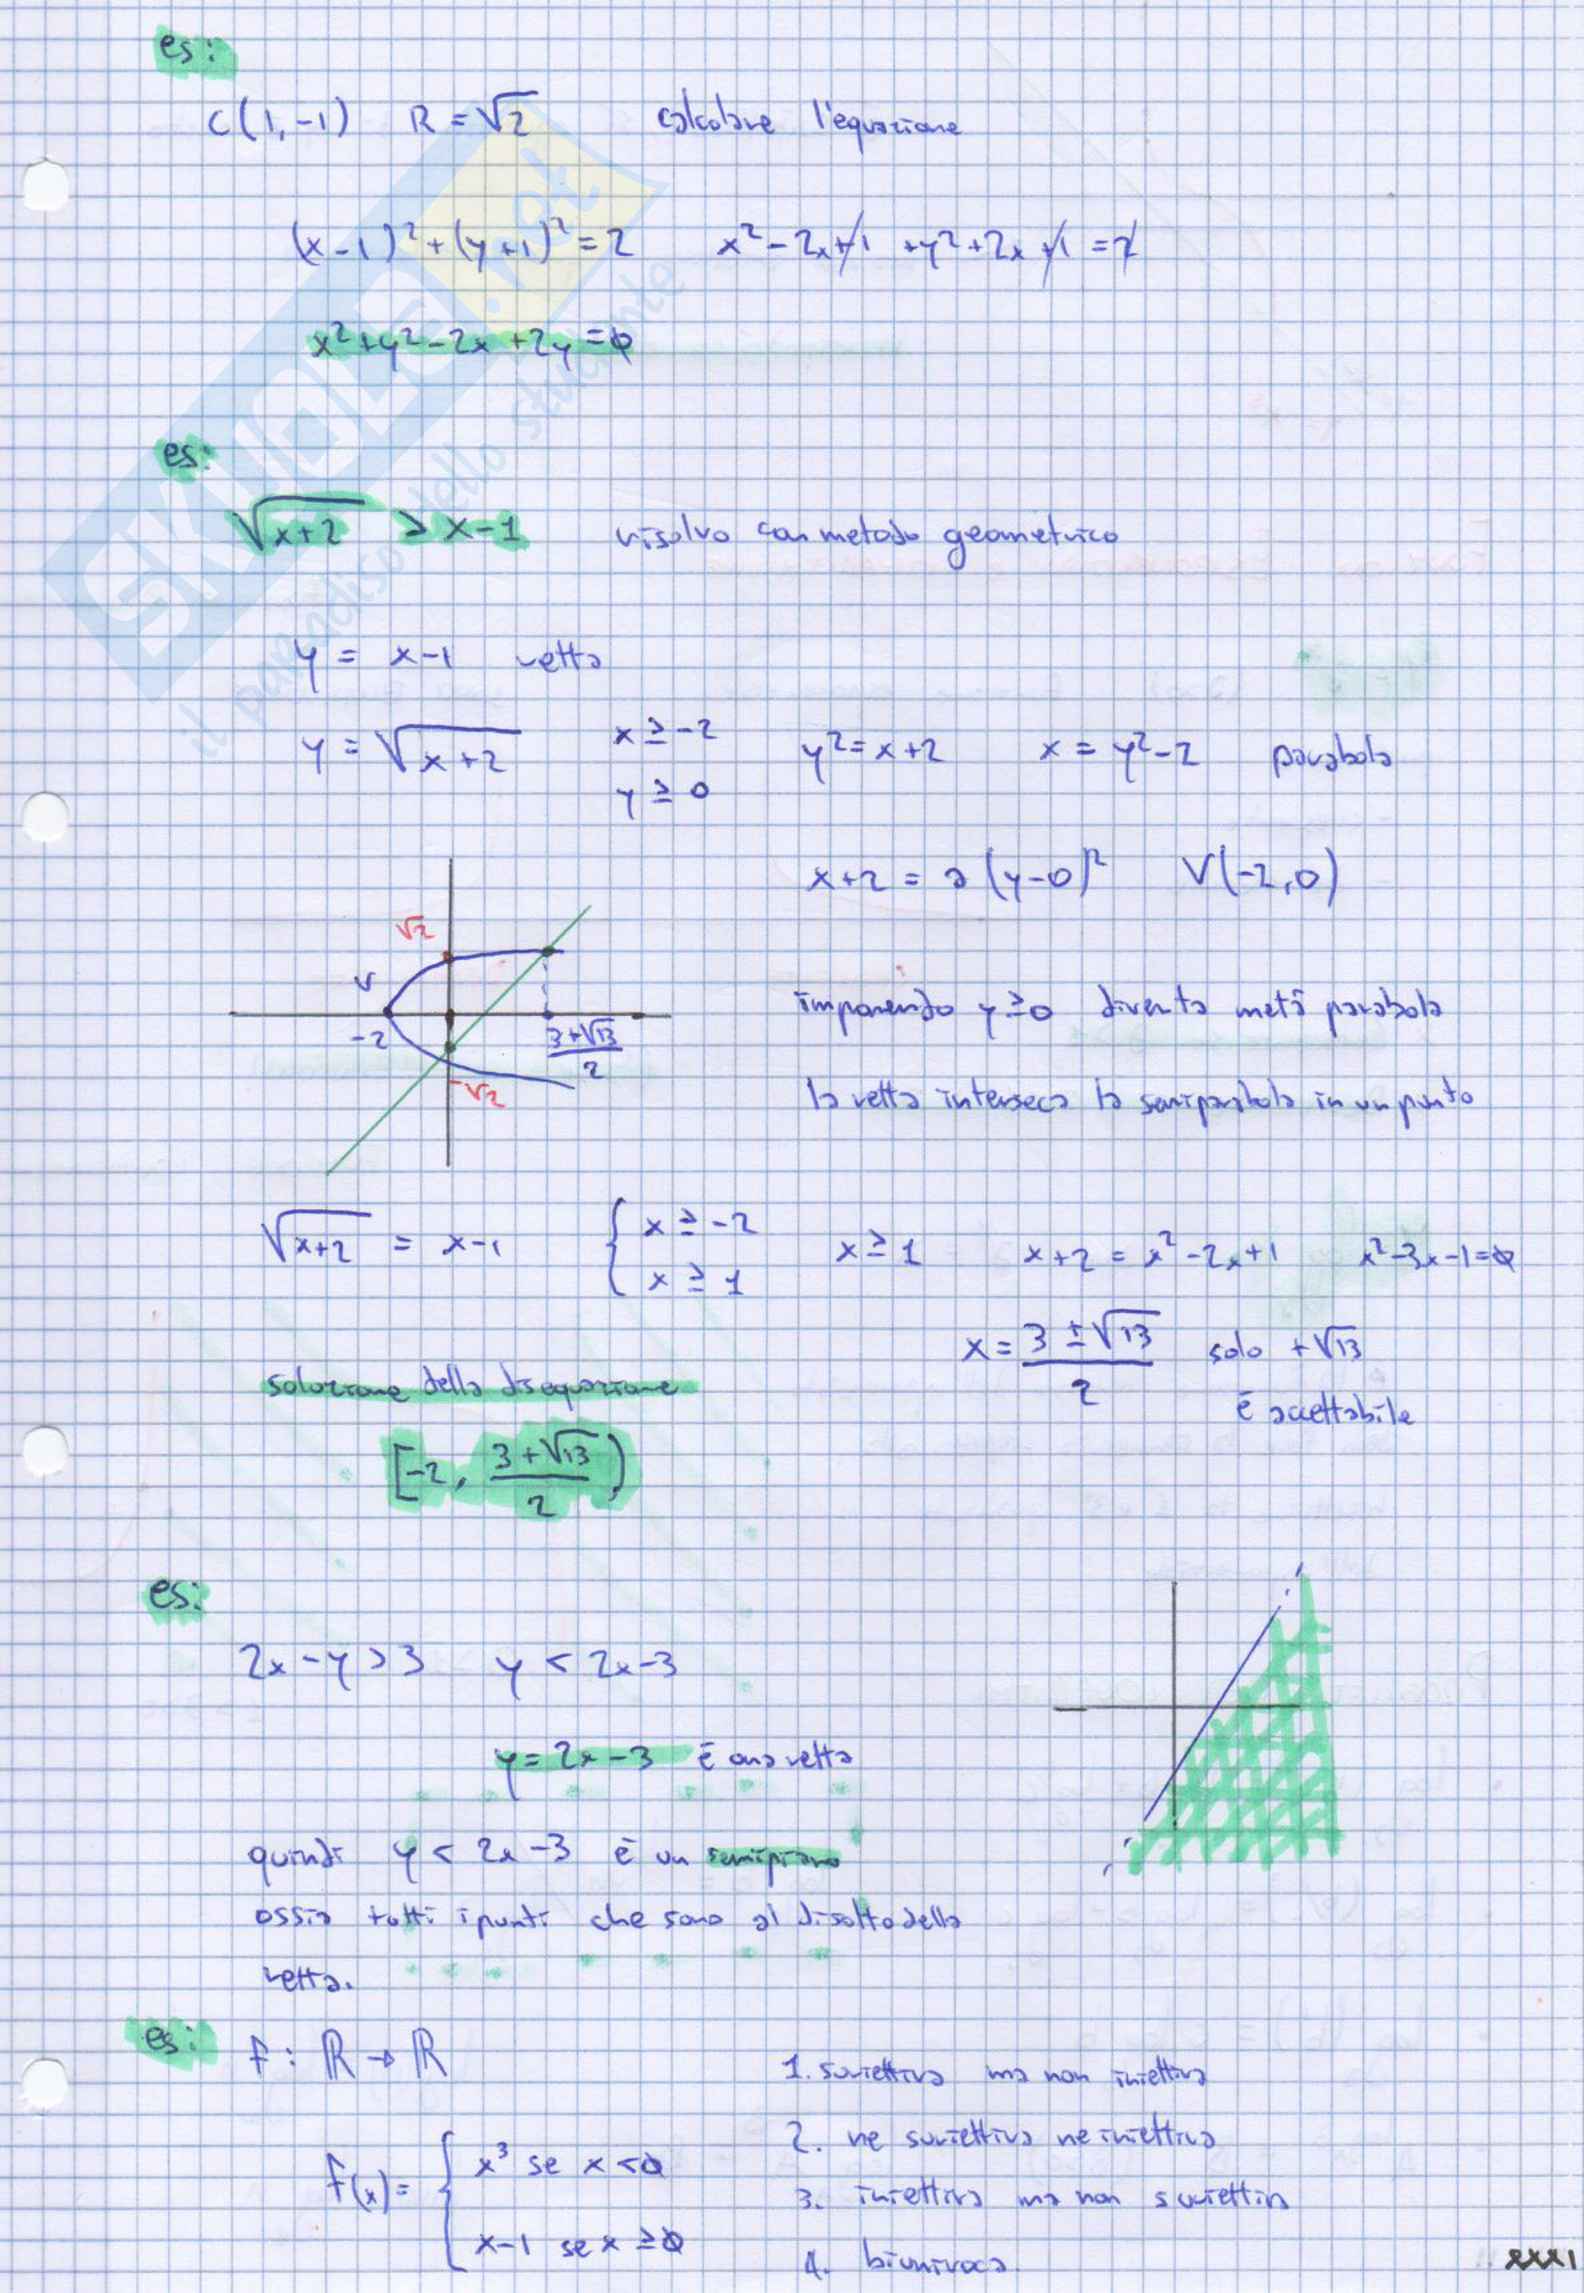 es:
C(1,-1) R=√2 calcolare l'equazione
(x-1)²+(y+1)²=2 x²-2x+1 +y²+2x+1=2
x²+y²-2x+2y=0
es:
√x+2 > x-1 risolvo con metodo geometrico
y = x-1 retta
y = √x+2 x≥-2 y²=x+2 x=y²-2 parabola
y≥0
x+2 = a(y-0)² V(-2,0)
√2
V
-2
3+√13
2
-√2
imponendo y≥0 diventa metà parabola
la retta interseca la semiparabola in un punto
√x+2 = x-1 { x≥-2 x≥1 x+2 = x²-2x+1 x²-3x-1=0
x≥1
x = 3±√13 / 2 solo +√13
è accettabile
soluzione della disequazione
[-2, 3+√13 / 2)
es:
2x-y>3 y<2x-3
y=2x-3 è una retta
quindi y<2x-3 è un semipiano
ossia tutti i punti che sono al disotto della
retta.
es: f: ℝ→ℝ
1. suriettiva ma non iniettiva
2. ne suriettiva ne iniettiva
f(x)= { x³ se x<0
3. iniettiva ma non suriettiva
x-1 se x≥0
4. biunivoca.
SKUOLA.net
il paradiso dello studente